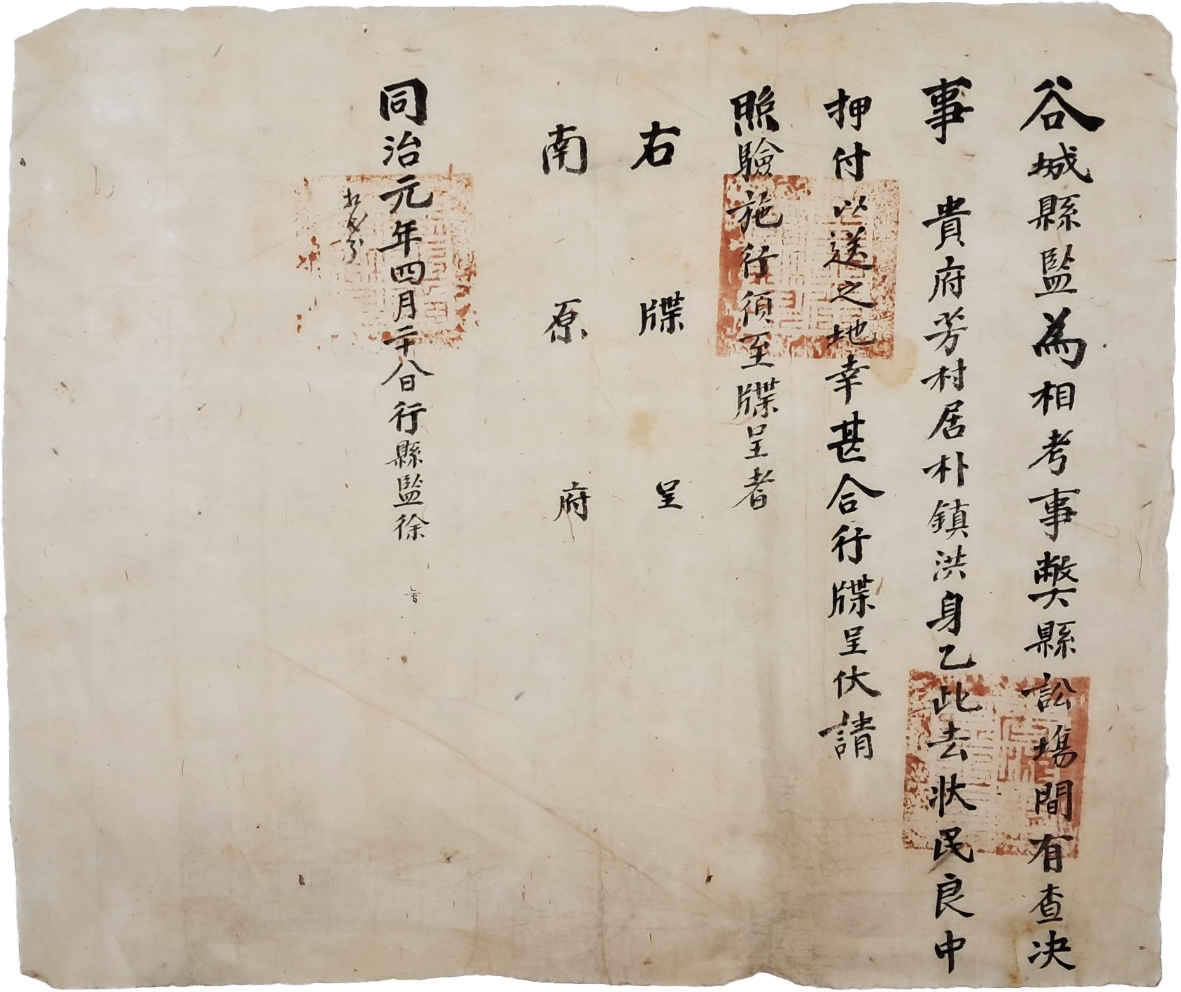 谷城縣監爲相考事弊縣訟場間有査决
事 貴府芳村居朴鎮洪身乙此去狀民良中
押付以送之地幸甚合行牒呈伏請
照驗施行須至牒呈者
右牒呈
南原府
同治元年四月二十八日行縣監徐